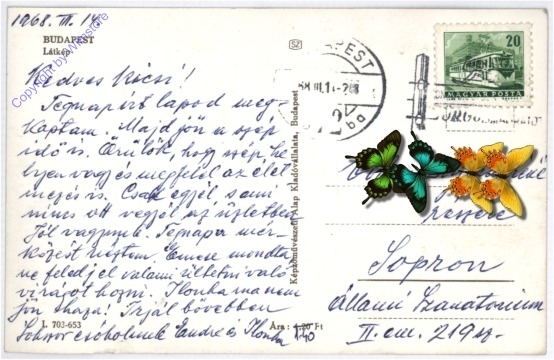 1968. III. 14.
BUDAPEST
Látkép
Kedves Mócsi!
Tegnapírt lapod meg-
kaptam. Majd jön a szép
idő is. Örülök, hogy szép he-
lyen vagy és megfelől az élel
mezés is. Csak egyél, s ami
nincs ott vegyél az üzletben
Jól vagyunk. Tegnap mér-
kőzést néztem. Emese mondta
ne feledj el valami ültetni való
virágot hozni. Ilonka ma nem
jön haza! Írjál bővebben
Sokszor csókolunk Endre és Ilonka
L. 703-653
Képzőművészeti Alap Kiadóvállalata, Budapest
Ára: 1.20 Ft
1.40
SZ
Copyright by
20
MAGYAR POSTA
részére
Sopron
Állami Szanatórium
II. em. 219 sz.